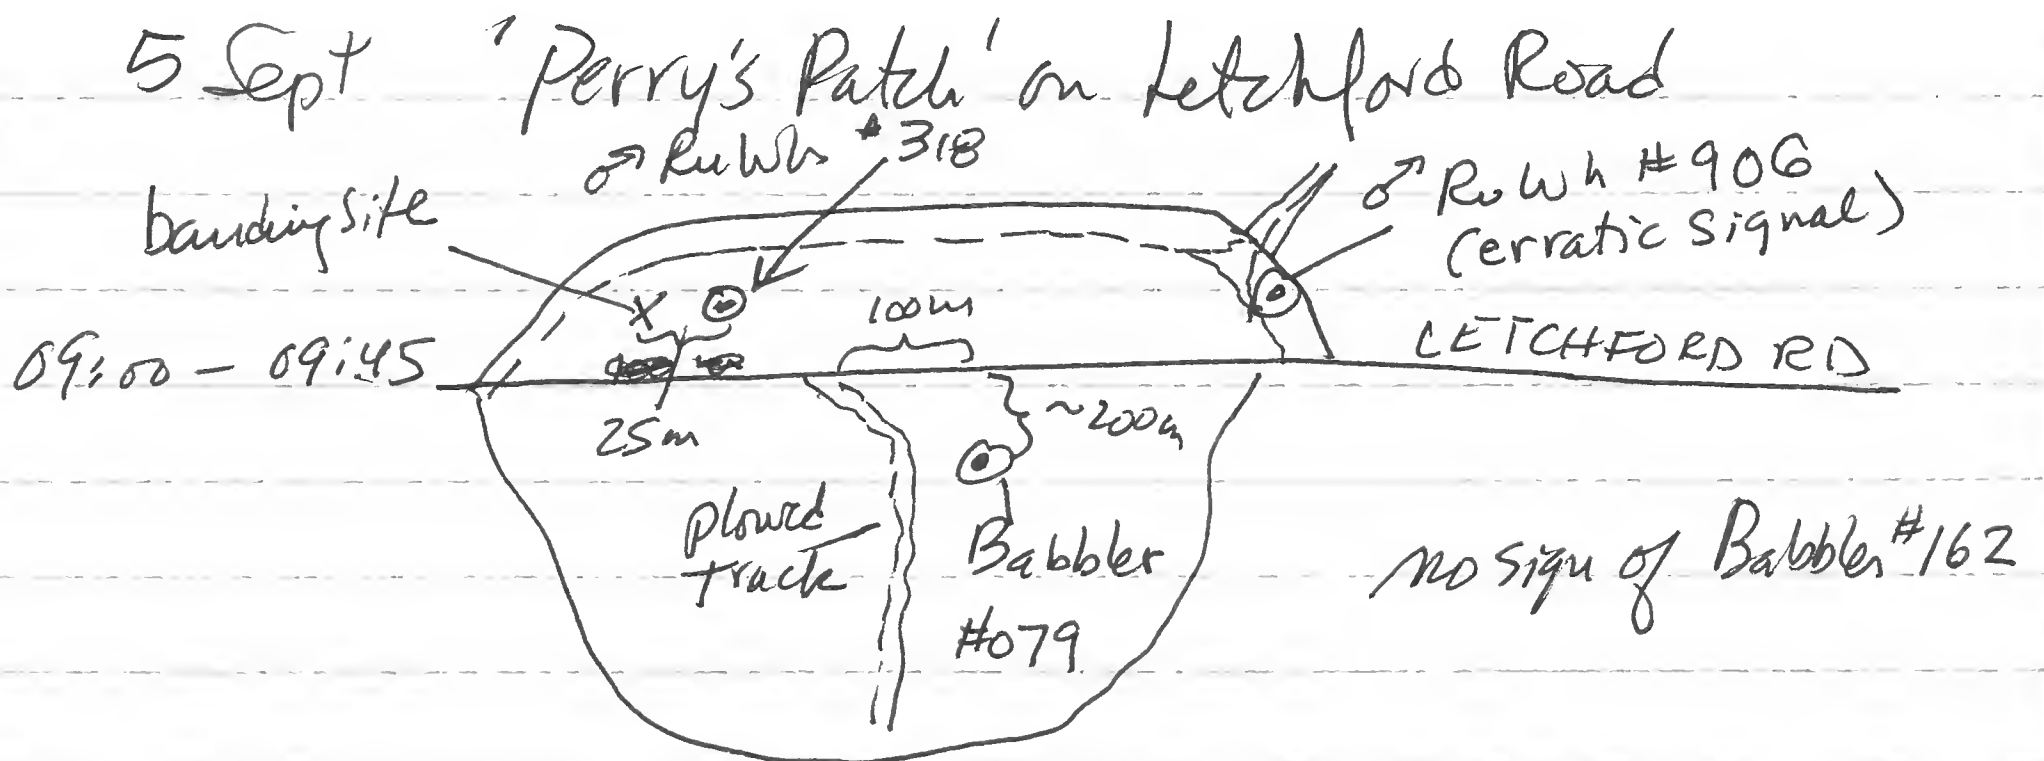 5 Sept 'Perry's Patch' on Letchford Road
♂ RuWh #318
♂ RuWh #906
(erratic signal)
banding site
100m
09:00 - 09:45
LETCHFORD RD
25m
~200m
plowed
track
Babbler
#079
no sign of Babbler #162